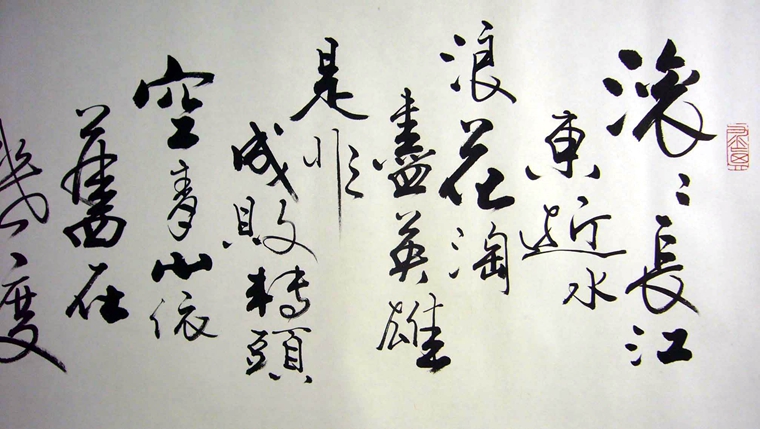 滚〻長江
東逝水
浪花淘
盡英雄
是非
成敗轉頭
空青山依
舊在
幾度